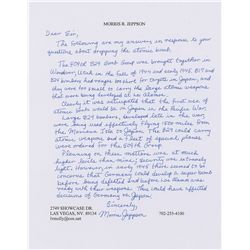 MORRIS R. JEPPSON
Dear Sir,
The following are my answers in response to your
questions about dropping the atomic bomb.
The 509th B29 Bomb Group was brought together in
Wendover, Utah in the fall of 1944 and early 1945. B17 and
B24 bombers had ranges too short for targets in Japan, and
they were too small to carry the large atomic weapons that
were being developed at Los Alamos.
Clearly it was anticipated that the first use of
atomic bombs would be in the Pacific War.
Large B29 bombers, developed late in the war,
were being used effectively flying 1500 miles from
the Mariana Isls to Japan. The B29 could carry
atomic weapons and a fleet of special planes
were ordered for the 509th Group.
Planning on these matters was at much
higher levels than mine; security was extremely
tight. However, in early 1945 there seemed to be
concerns that Germany could develop a super bomb
before being defeated and before Los Alamos was
ready with their weapons. This could have affected
decisions of Germany vs Japan.
Sincerely,
Morris Jeppson
2749 SHOWCASE DR.
LAS VEGAS, NV. 89134
702-255-4100